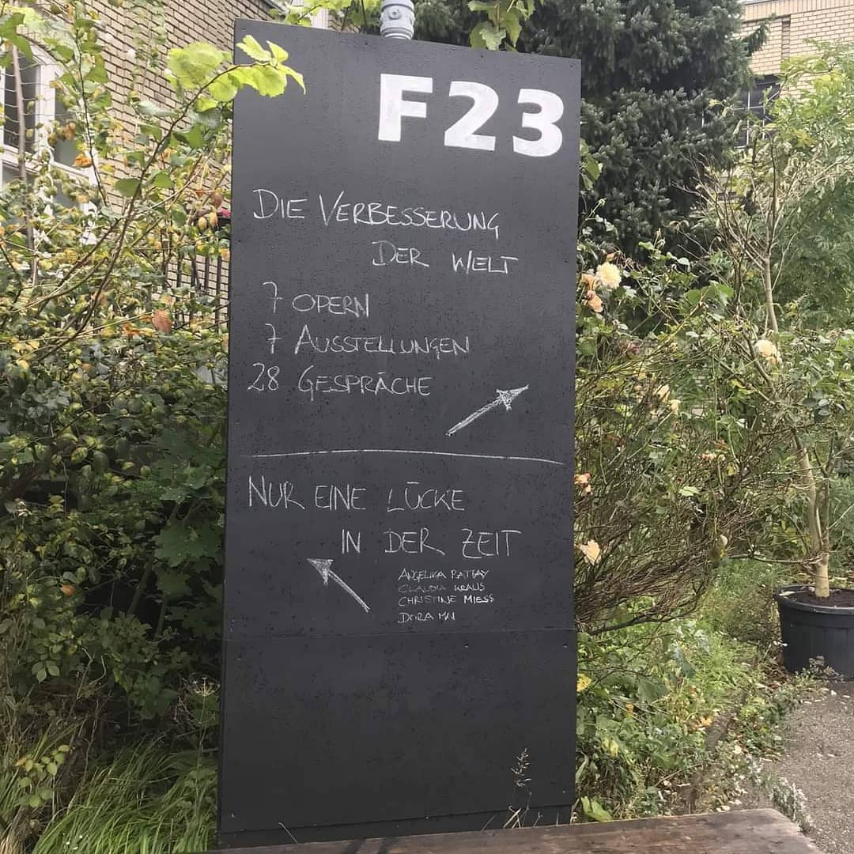 F23
DIE VERBESSERUNG
DER WELT
7 OPERN
7 AUSSTELLUNGEN
28 GESPRÄCHE
NUR EINE LÜCKE
IN DER ZEIT
ANGELIKA RATTAY
CLAUDIA KRAUS
CHRISTINE MIESS
DORA